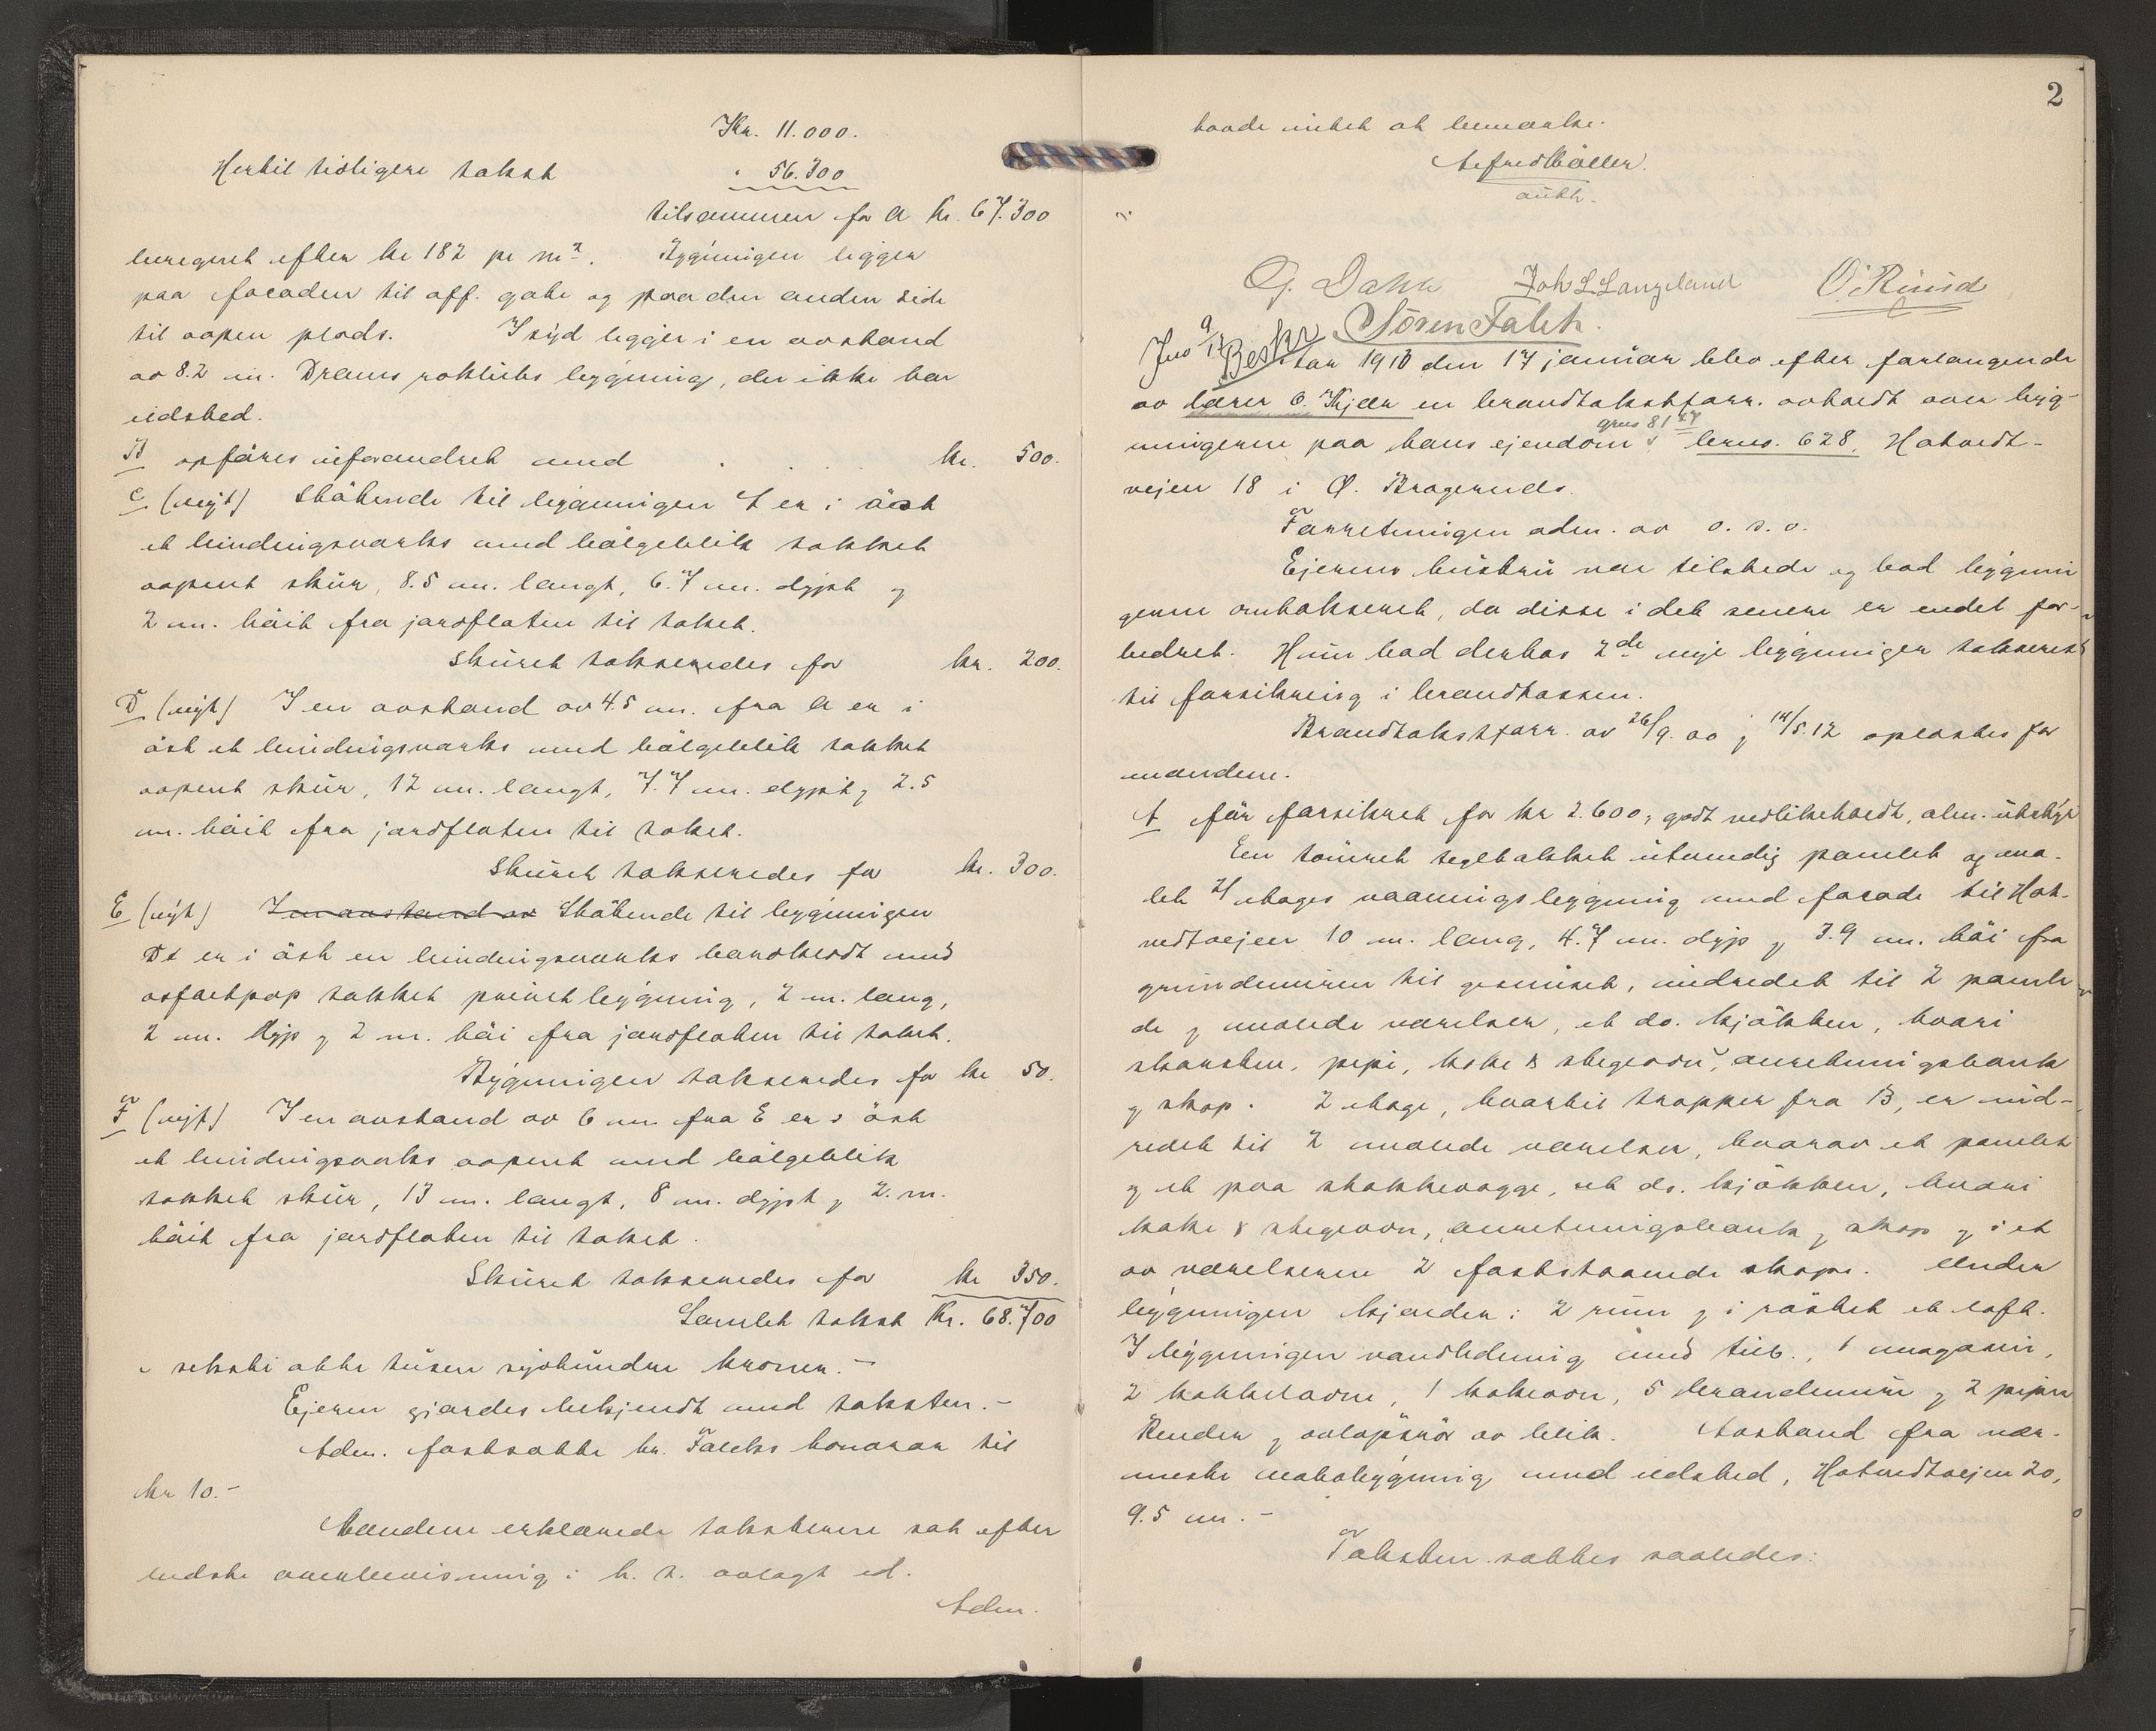 Kr. 11.000.
Hertil tidligere takst " 56.300
tilsammen for A kr. 67.300
beregnet efter kr 182 pr m². Bygningen ligger
paa facaden til off. gate og paa den anden side
til aapen plads. I syd ligger i en avstand
av 8.2 m. Drams roklubs bygning, der ikke har
ildsted.
B opføres uforandret med kr. 500.
C (nyt) Støtende til bygningen A er i øst
et bindingsverks med bølgeblik tækket
aapent skur, 8.5 m. langt, 6.7 m. dypt og
2 m. høit fra jordflaten til taket.
Skuret takseredes for kr. 200.
D (nyt) I en avstand av 4.5 m. fra A er i
øst et bindingsverks med bølgeblik tækket
aapent skur, 12 m. langt, 7.7 m. dypt og 2.5
m. høit fra jordflaten til taket.
Skuret takseredes for kr. 300.
E (nyt) I en avstand av Støtende til bygningen
D er i øst en bindingsverks bordklædt med
asfaltpap tækket privetbygning, 2 m. lang,
2 m. dyp og 2 m. høi fra jordflaten til taket.
Bygningen takseredes for kr 50.
F (nyt) I en avstand av 6 m. fra E er i øst
et bindingsverks aapent med bølgeblik
tækket skur, 13 m. langt, 8 m. dypt og 2. m.
høit fra jordflaten til taket.
Skuret takseredes for kr 350.
Samlet takst Kr. 68.700
seksti otte tusen syvhundre kroner.-
Eieren gjordes bekjendt med taksten.-
Adm. fastsatte hr. Falcks honorar til
kr 10.-
Mændene erklærede taksterne sat efter
bedste overbevisning i h. t. avlagt ed.
Adm.
2
havde intet at bemerke.
Alfred Møller.
auth.
G. Dahl Joh L. Langeland O. Ruud
Søren Falck.
Beskr
Aar 1918 den 17 januar blev efter forlangende
av lærer O. Kjær en brandtakstforr. avholdt over byg-
gnus 81 27
ningerne paa hans ejendom brno. 628, Hotvedt-
vejen 18 i Ø. Bragernes.
Forretningen adm. av o. s. v.
Ejerens hustru var tilstede og bad bygnin
gerne omtakseret, da disse i det senere er endel for-
bedret. Hun bad derhos 2de nye bygninger takseret
til forsikring i brandkassen.
Brandtakstforr. av 26/9. 00 og 14/5.12 oplæstes for
mændene.
A før forsikret for kr 2.600, godt vedlikeholdt, alm. utstyr
En tømret teglstækket utvendig panelt og ma-
let 2 etages vaaningsbygning med facade til Hot-
vedtvejen 10 m. lang, 4.7 m. dyp og 3.9 m. høi fra
grundmuren til gesimset, indredet til 2 panele
de og malede værelser, et do. kjøkken, hvori
skorsten, pipe, koke & stegeovn, anretningsbænk
og skap. 2 etage, hvortil trapper fra B, er ind-
redet til 2 malede værelser, hvorav et panelet
og et paa stokkevægge, et do. kjøkken, hvori
koke & stegeovn, anretningsbænk og skap og i et
av værelserne 2 faststaaende skape. Under
bygningen kjelder i 2 rum og i røstet et loft.
I bygningen vandledning med tilb., 1 magasin,
2 kakkelovne, 1 kokeovn, 5 brandemure og 2 piper
Render og avløpsrør av blik. Avstand fra nær-
meste nabobygning med ildsted, Hotvedtvejen 20,
9.5 m.-
Taksten sættes saaledes: